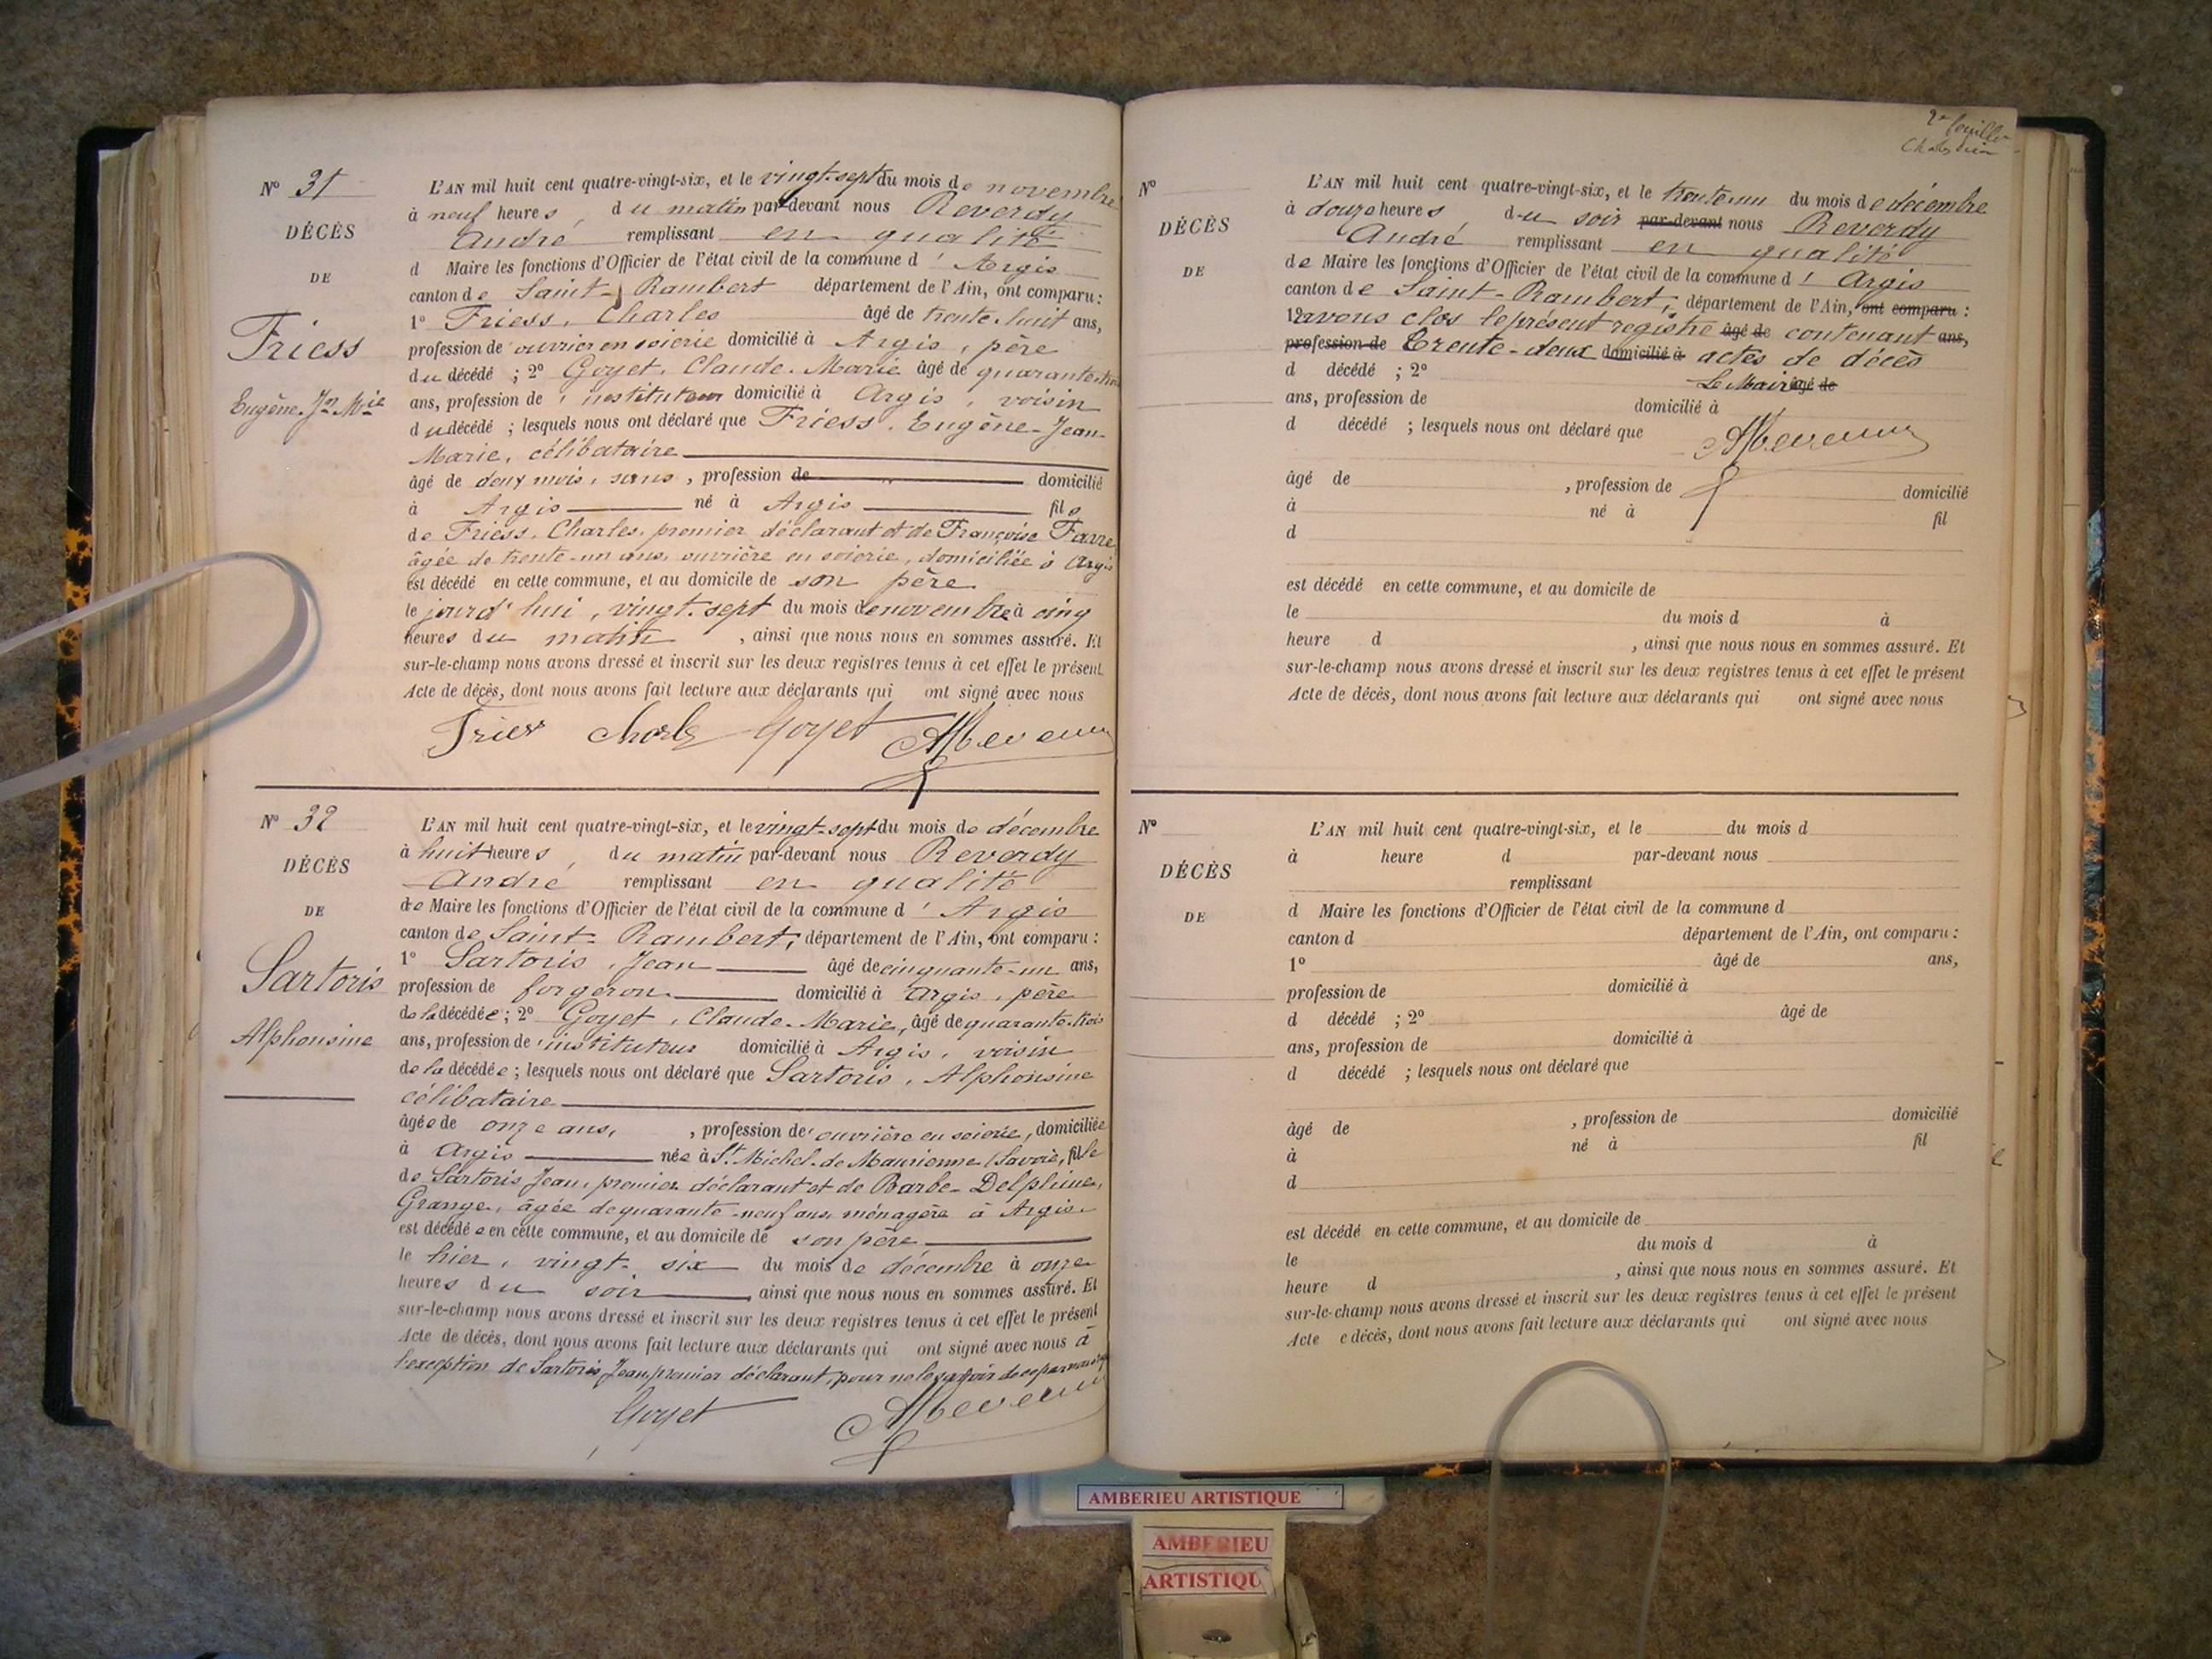 N° 31
DÉCÈS
DE
Friess
Eugène Jn Mie
L'AN mil huit cent quatre-vingt-six, et le vingt-sept du mois de novembre
à neuf heures, du matin par-devant nous Reverdy
André remplissant en qualité
d Maire les fonctions d'Officier de l'état civil de la commune d'Argis
canton de Saint-Rambert département de l'Ain, ont comparu :
1° Friess, Charles âgé de trente-huit ans,
profession de ouvrier en soierie domicilié à Argis, père
du décédé ; 2° Goyet, Claude-Marie âgé de quarante-trois
ans, profession de instituteur domicilié à Argis, voisin
du décédé ; lesquels nous ont déclaré que Friess, Eugène-Jean-
Marie, célibataire
âgé de deux mois, sans, profession de domicilié
à Argis né à Argis fils
de Friess, Charles, premier déclarant et de Françoise Favre
âgée de trente-un ans, ouvrière en soierie, domiciliée à Argis
est décédé en cette commune, et au domicile de son père
le jourd'hui, vingt-sept du mois de novembre à cinq
heures du matin, ainsi que nous nous en sommes assuré. Et
sur-le-champ nous avons dressé et inscrit sur les deux registres tenus à cet effet le présent
Acte de décès, dont nous avons fait lecture aux déclarants qui ont signé avec nous
Goyet
N° 32
DÉCÈS
DE
Sartoris
Alphonsine
L'AN mil huit cent quatre-vingt-six, et le vingt-sept du mois de décembre
à huit heures, du matin par-devant nous Reverdy
André remplissant en qualité
de Maire les fonctions d'Officier de l'état civil de la commune d'Argis
canton de Saint-Rambert, département de l'Ain, ont comparu :
1° Sartoris, Jean âgé de cinquante-un ans,
profession de forgeron domicilié à Argis, père
de la décédée ; 2° Goyet, Claude-Marie, âgé de quarante-trois
ans, profession d'instituteur domicilié à Argis, voisin
de la décédée ; lesquels nous ont déclaré que Sartoris, Alphonsine
célibataire
âgée de onze ans, , profession d'ouvrière en soierie, domiciliée
à Argis née à St Michel-de-Maurienne (Savoie, fille
de Sartoris Jean, premier déclarant et de Barbe-Delphine,
Grange, âgée de quarante-neuf ans, ménagère à Argis
est décédée en cette commune, et au domicile de son père
le hier, vingt-six du mois de décembre à onze
heures du soir, ainsi que nous nous en sommes assuré. Et
sur-le-champ nous avons dressé et inscrit sur les deux registres tenus à cet effet le présent
Acte de décès, dont nous avons fait lecture aux déclarants qui ont signé avec nous à
l'exception de Sartoris Jean premier déclarant, pour ne le savoir de ce par nous
Goyet
2e feuillet
N°
DÉCÈS
DE
L'AN mil huit cent quatre-vingt-six, et le trente-un du mois de décembre
à douze heures du soir par-devant nous Reverdy
André remplissant en qualité
de Maire les fonctions d'Officier de l'état civil de la commune d'Argis
canton de Saint-Rambert, département de l'Ain, ont comparu :
1° avons clos le présent registre âgé de contenant ans,
profession de Trente-deux domicilié à actes de décès
d décédé ; 2° Le Maire âgé de
ans, profession de domicilié à
d décédé ; lesquels nous ont déclaré que
âgé de , profession de domicilié
à né à fil
d
est décédé en cette commune, et au domicile de
le du mois d à
heure d , ainsi que nous nous en sommes assuré. Et
sur-le-champ nous avons dressé et inscrit sur les deux registres tenus à cet effet le présent
Acte de décès, dont nous avons fait lecture aux déclarants qui ont signé avec nous
N°
DÉCÈS
DE
L'AN mil huit cent quatre-vingt-six, et le du mois d
à heure d par-devant nous
remplissant
d Maire les fonctions d'Officier de l'état civil de la commune d
canton d département de l'Ain, ont comparu :
1° âgé de ans,
profession de domicilié à
d décédé ; 2° âgé de
ans, profession de domicilié à
d décédé ; lesquels nous ont déclaré que
âgé de , profession de domicilié
à né à fil
d
est décédé en cette commune, et au domicile de
le du mois d à
heure d , ainsi que nous nous en sommes assuré. Et
sur-le-champ nous avons dressé et inscrit sur les deux registres tenus à cet effet le présent
Acte e décès, dont nous avons fait lecture aux déclarants qui ont signé avec nous
AMBERIEU ARTISTIQUE
AMBERIEU
ARTISTIQU